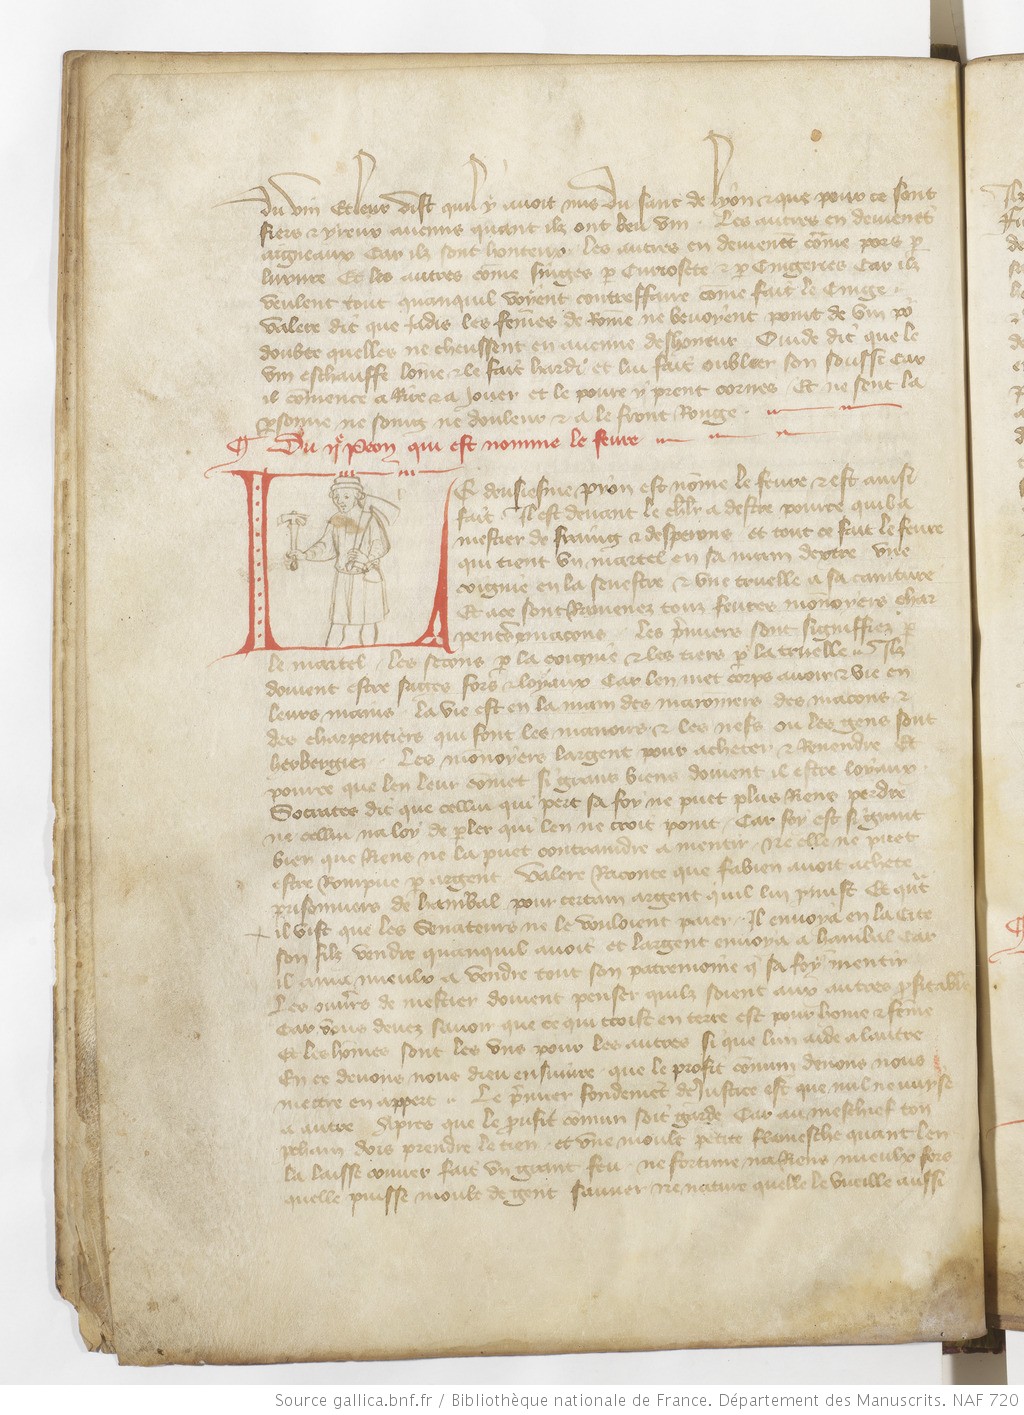 du vin Et leur dist quil y avoit mis du sanc de lyon et que pour ce sont
fiers et yreux aucuns quant ilz ont beu vin. Les autres en deviennẽt
aigneaux Car ilz sont honteux. les autres en deviennẽt cõme pors p̱
luxure Et les autres cõme singes p̱ curiosete et p̱ cingeries Car ilz
veulent tout quanquil voyent contreffaire cõme fait le cinge.
Valere dit que Jadis les fem̃es de Rom̃e ne bevoyent point de vin po᷑
doubte quelles ne cheussent en aucune deshoneur. Ovide dit que le
vin eschauffe lome et le fait hardi et lui fait oublier son soussi Car
il cõmence a Rire et a Jouer et le povre y prent cornes. Et ne sent la
p̱sonne ne soing ne douleur et a le front Rouge.
Du ij᷑ Peon qui est nomme le fevre
LE deusiesme pion est nõme le fevre et est ainsi
fait. Il est devant le chl̃r a destre pource quil a
mestier de fraing et desperons et tout ce fait le fevre
qui tient un martel en sa main dextre une
coignie en la senestre et une truelle a sa cainture
Et a ce sont Ramenez touz fevres monnoyers char
pent̃s maçons. Les p̃miers sont signiffiez p̱
le martel. les secons p̱ la coignie et les tiers p̱ la truelle. Ilz
doivent estre sages fors et loyaux Car len met corps avoir et vie en
leurs mains. la vie est en la main des maronniers des macons et
des charpentiers qui font les manoirs et les nefs ou les gens sont
herbergiez. Les monoyers largent pour acheter et Revendre Et
pource que len leur cõmet si grans biens doivent il estre loyaux.
Socrates dit que cellui qui pert sa foy ne puet plus Riens perdre
ne cellui na loy de p̱ler qui len ne croit point. Car foy est si grant
bien que Riens ne la puet contraindre a mentir. Ne elle ne puet
estre Rompue p̱ argent. Valere Raconte que fabien avoit achete
prisonniers de hanibal pour certain argent quil lui promist Et qñt
il vist que les Senateurs ne le vouloient paier. Il envoya en la cite
son filz vendre quanquil avoit et largent envoya a hanibal Car
il ama mieulx a vendre tout son patremoine q̃ sa foy mentir
Les ouvr̃s de mestier doivent penser quilz soient aux autres p̱fitables
Car vous devez savoir que ce qui croist en terre est pour home et fẽme
Et les hõmes sont les uns pour les autres si que lun aide a lautre
En ce devons nous dieu ensuivre. que le profit cõmun devons nous
mettre en appert. Le p̃mier fondement de Justice est que nul ne nuyse
a autre Apres que le proufit cõmun soit garde Car au meschief ton
prochain dois prendre le tien. et une moult petite flamesche quant len
la laisse couver fait un grant feu. ne fortune na Riens mieulx fors
quelle puisse moult de gent sauver ne nature quelle le vueille aussi
Source gallica.bnf.fr / Bibliothèque nationale de France. Département des Manuscrits. NAF 720